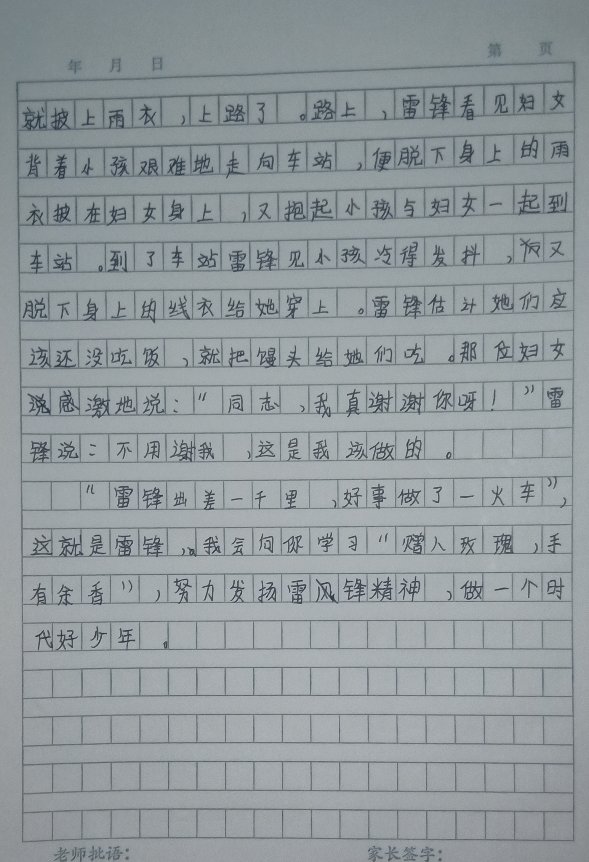 年 月 日 第 页
就披上雨衣，上路了。路上，雷锋看见妇女
背着小孩艰难地走向车站，便脱下身上的雨
衣披在妇女身上，又抱起小孩与妇女一起到
车站。到了车站雷锋见小孩冷得发抖，又
脱下身上的线衣给她穿上。雷锋估斗她们应
该还没吃饭，就把馒头给她们吃。那位妇女
感激地说：“同志，我真谢谢你呀！”雷
锋说：不用谢我，这是我该做的。
“雷锋出差一千里，好事做了一火车”，
这就是雷锋，。我会向你学习“赠人玫瑰，手
有余香”，努力发扬雷风锋精神，做一个时
代好少年。
老师批语： 家长签字：